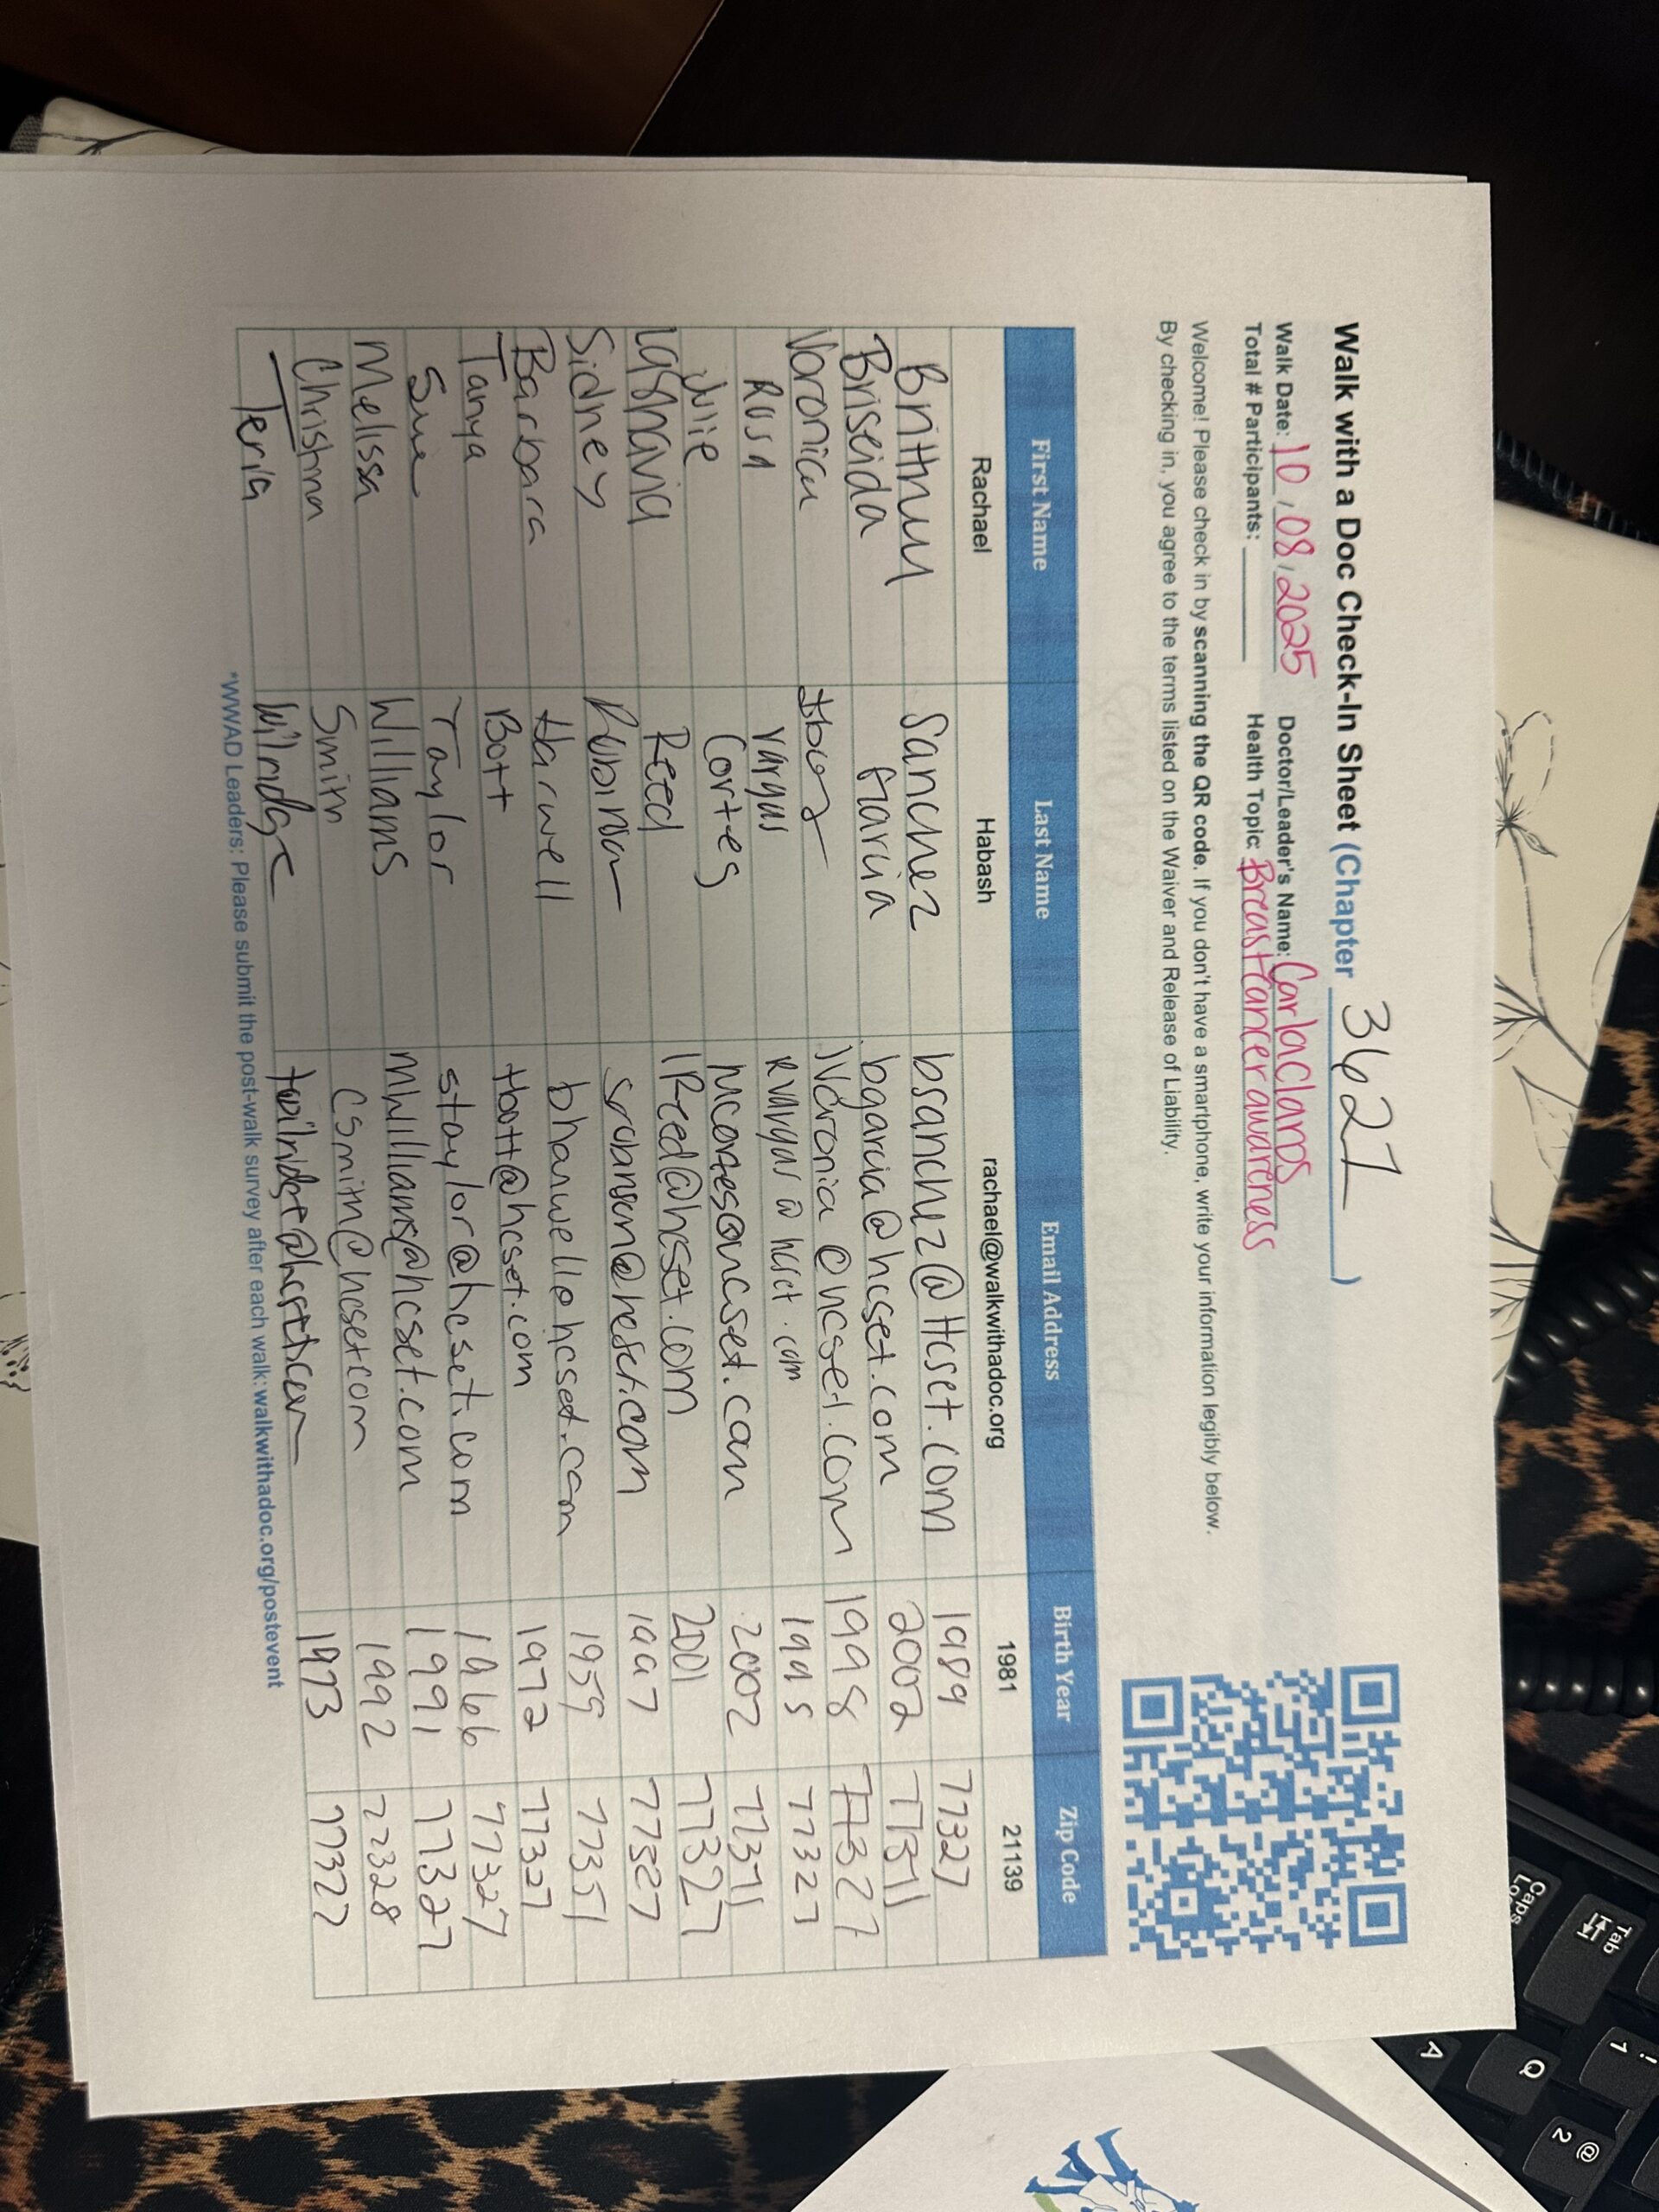 Walk with a Doc Check-In Sheet (Chapter 3627)
Walk Date: 10/08/2025 Doctor/Leader's Name: Carla Clams
Total # Participants: Health Topic: Breast Cancer awareness
Welcome! Please check in by scanning the QR code. If you don't have a smartphone, write your information legibly below.
By checking in, you agree to the terms listed on the Waiver and Release of Liability.
First Name Last Name Email Address Birth Year Zip Code
Rachael Habash rachael@walkwithadoc.org 1981 21139
Brithny Sanchez bsanchez@Hcset.com 1989 77327
Briseida Garcia bgarcia@hcset.com 2002
Veronica @hcset.com 1998 77327
Rosa Vargas RVargas@hcset.com 1995 77327
Julie Cortes mcortes@hcset.com 2002 77371
Reed lReed@hcset.com 2001 77327
Sidney Robinson srobinson@hcset.com 1997 77327
Barbara Harwell bharwell@hcset.com 1959 77351
Tanya Bott tbott@hcset.com 1972 77327
Sue Taylor staylor@hcset.com 1966 77327
Melissa Williams mwilliams@hcset.com 1991 77327
Christina Smith csmith@hcset.com 1992 77328
1973 77327
*WWAD Leaders: Please submit the post-walk survey after each walk: walkwithadoc.org/postevent
Tab
Caps
Lo
!
1
Q
A
@
2